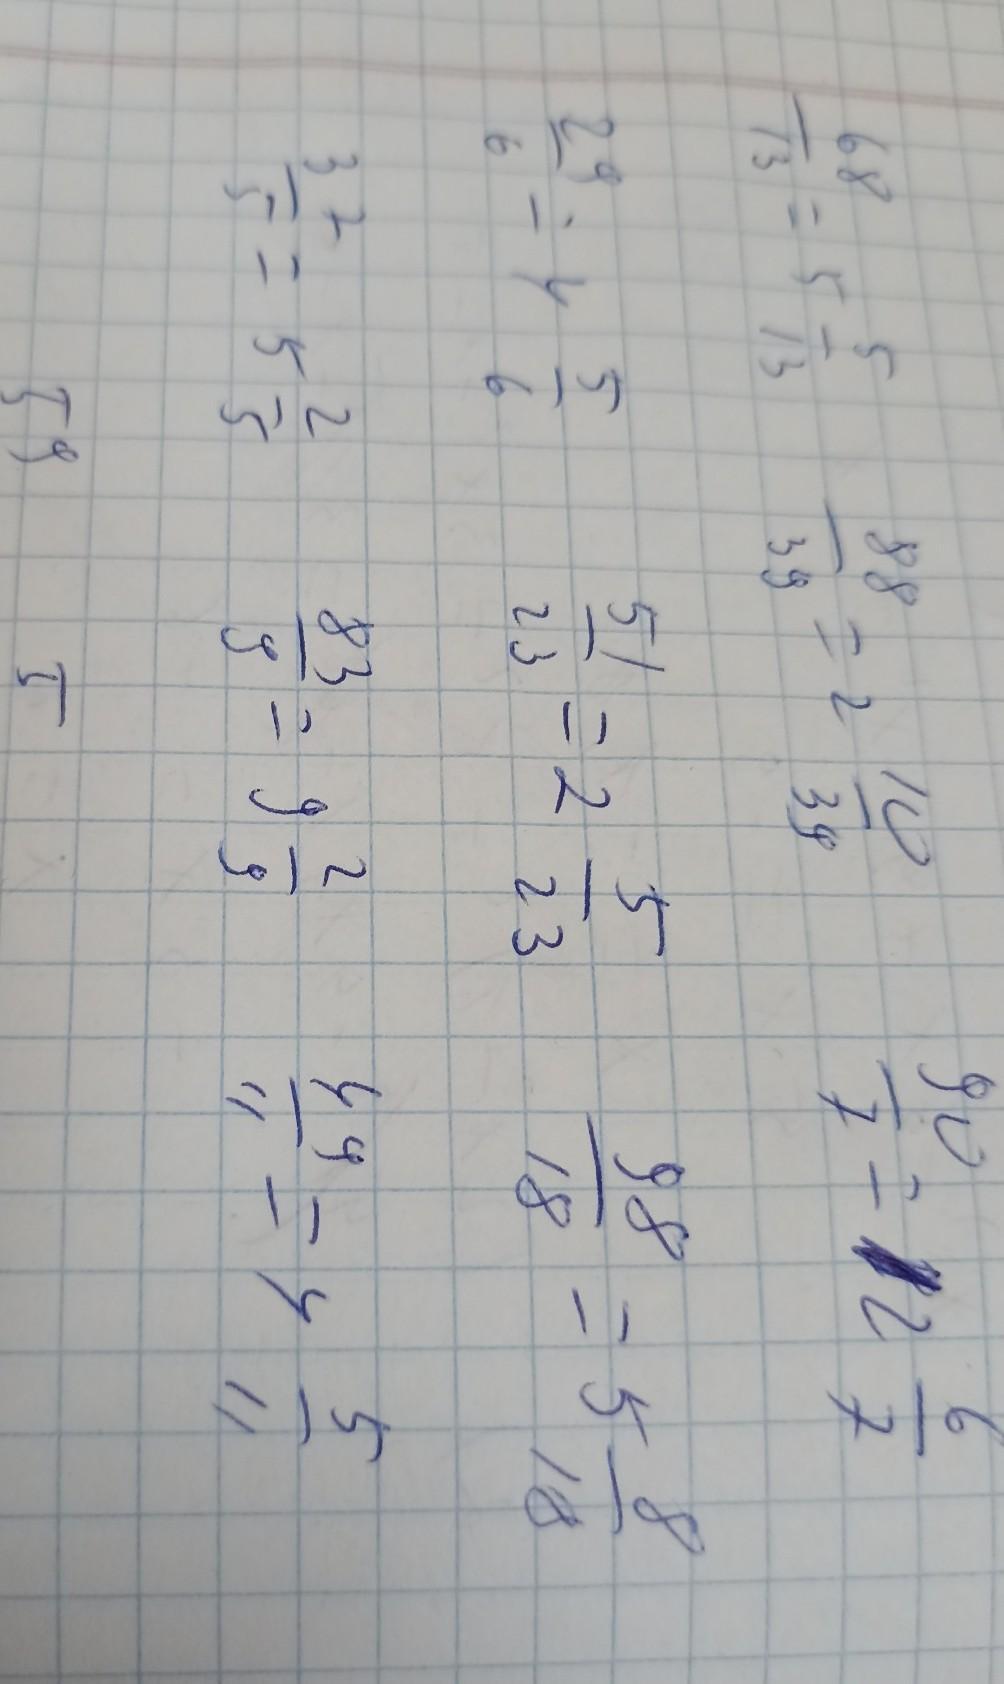 68/13 = 5 5/13   88/39 = 2 10/39   90/7 = 12 6/7
29/6 = 4 5/6   51/23 = 2 5/23   98/18 = 5 8/18
37/5 = 5 2/5   83/9 = 9 2/9   49/11 = 4 5/11